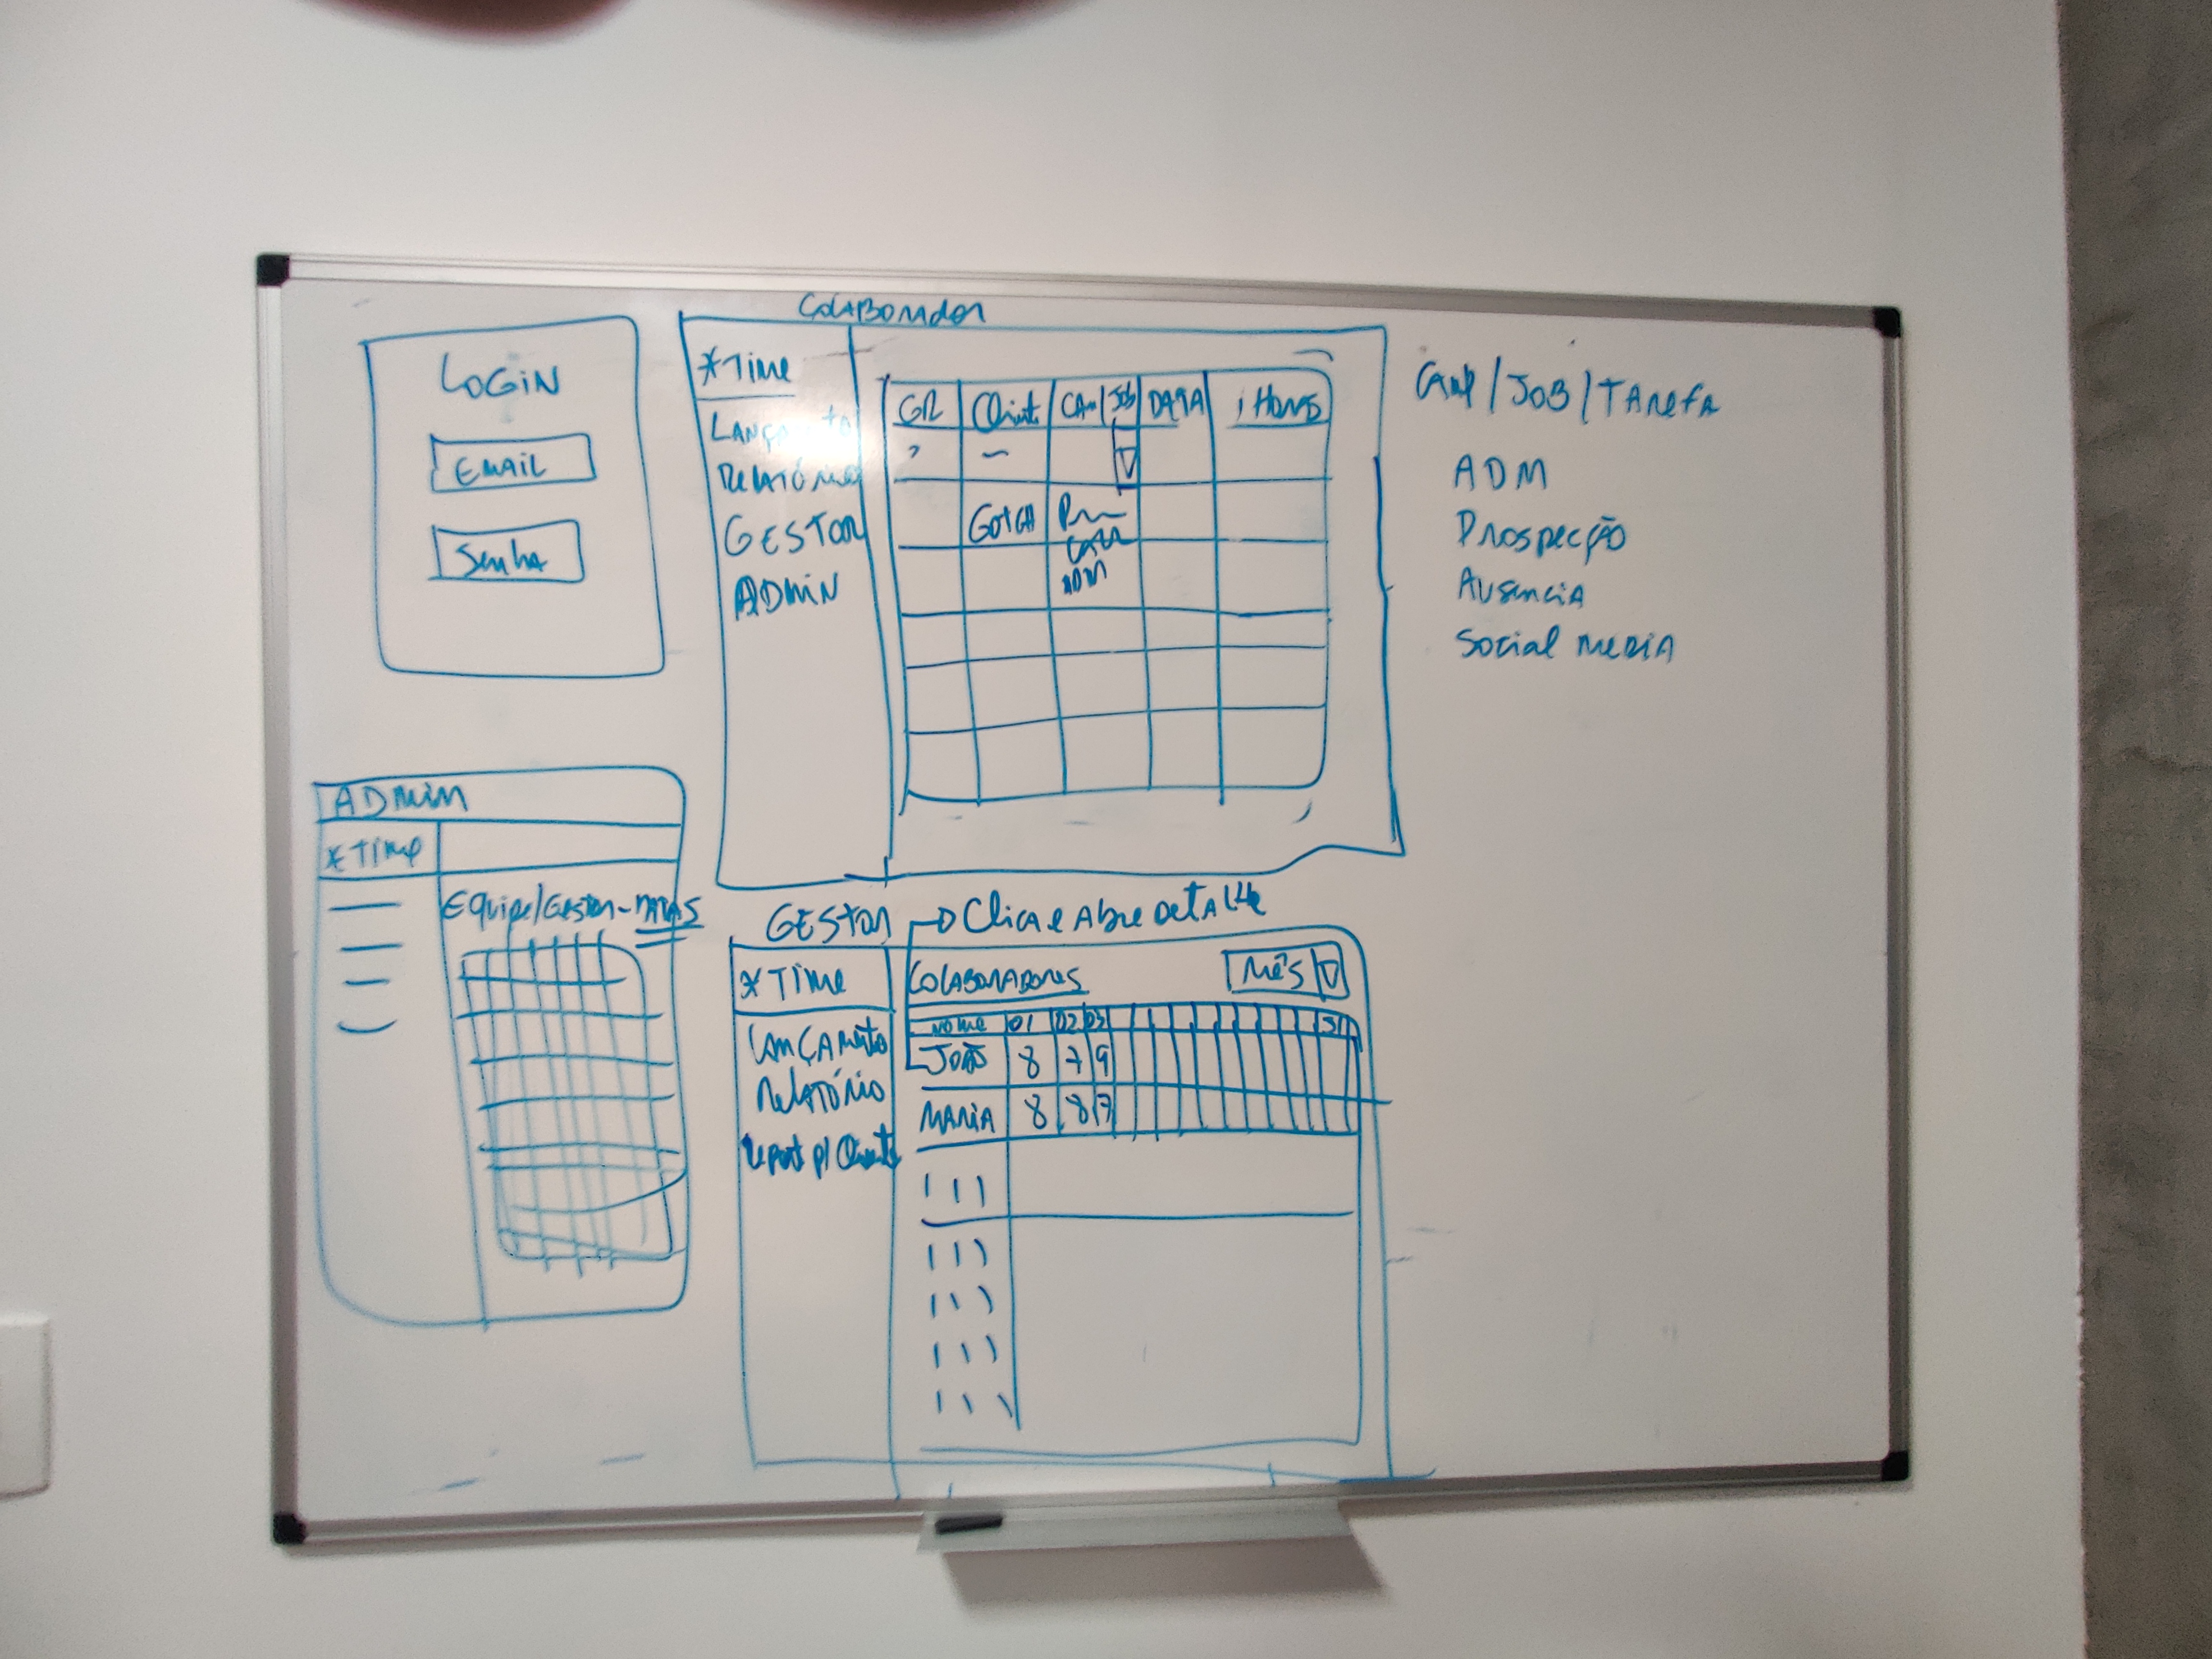 LOGIN
EMAIL
Senha
COLABORADOR
*Time
LANÇAMENTO
RELATÓRIOS
GESTOR
ADMIN
GR Cliente CAM/JOB DATA HORAS
GOTCH
ADM
CAMP/JOB/TAREFA
ADM
Prospecção
AUSENCIA
Social MEDIA
ADMIN
*Time
EQUIPE/GESTOR-
GESTOR → Clica e Abre Detalhe
*Time
LANÇAMENTO
RELATÓRIO
report p/ Cliente
COLABORADORES MÊS
NOME 01 02 03 31
JOÃO 8 7 9
MARIA 8 8 7